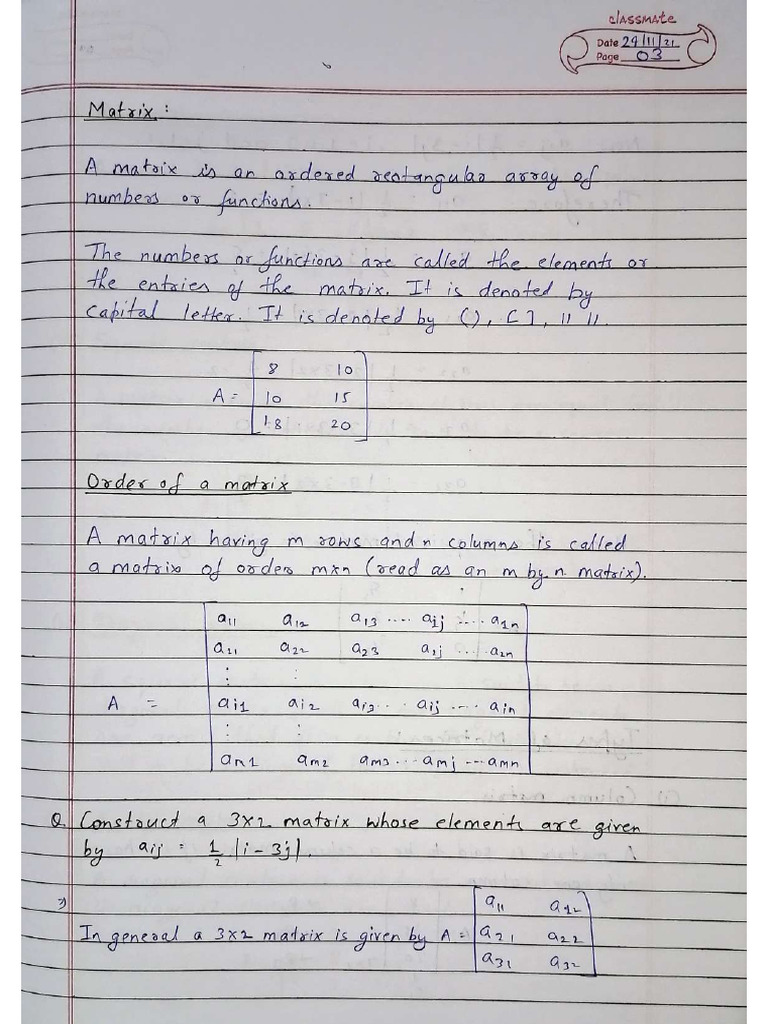 classmate
Date 24/11/21
Page 03
Matrix :
A matrix is an ordered rectangular array of
numbers or functions.
The numbers or functions are called the elements or
the entries of the matrix. It is denoted by
capital letter. It is denoted by (), [ ], || ||.
8 10
A = 10 15
18 20
Order of a matrix
A matrix having m rows and n columns is called
a matrix of order mxn (read as an m by n matrix).
a11 a12 a13 .... a1j .... a1n
a21 a22 a23 a2j .... a2n
⋮ ⋮
A = ai1 ai2 ai3 .. aij .... ain
⋮ ⋮
am1 am2 am3 ... amj ... amn
Q Construct a 3x2 matrix whose elements are given
by aij = 1/2 |i - 3j|.
a11 a12
In general a 3x2 matrix is given by A = a21 a22
a31 a32